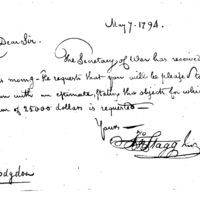 May 7. 1794.
Dear Sir.
The Secretary of War has received
s morng. He requests that you will be pleased to
on with an estimate, stating the objects for whi
on of 25000 dollars is requested
Yours
Stagg Jun
odgdon